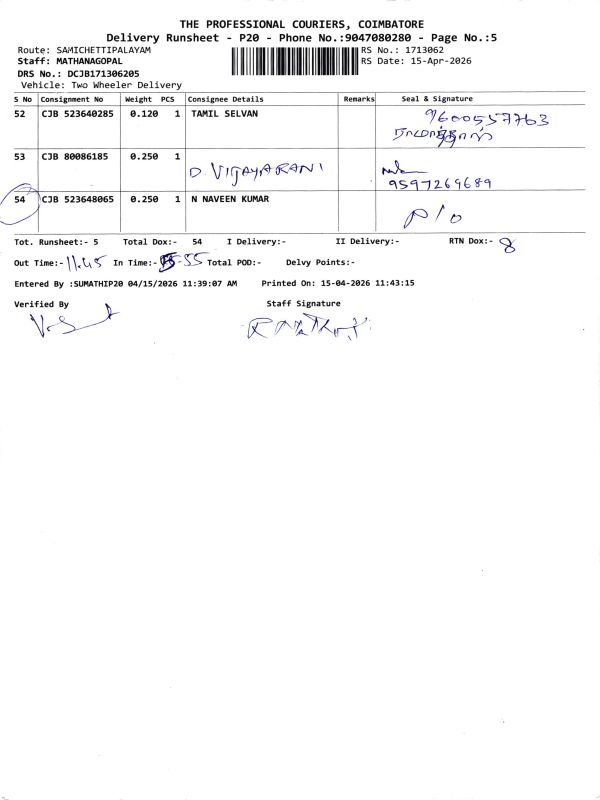 THE PROFESSIONAL COURIERS, COIMBATORE
Delivery Runsheet - P20 - Phone No.:9047080280 - Page No.:5
Route: SAMICHETTIPALAYAM RS No.: 1713062
Staff: MATHANAGOPAL RS Date: 15-Apr-2026
DRS No.: DCJB171306205
Vehicle: Two Wheeler Delivery
S No Consignment No Weight PCS Consignee Details Remarks Seal & Signature
52 CJB 523640285 0.120 1 TAMIL SELVAN 9600557763
53 CJB 80086185 0.250 1 D. VIJAYARANI
9597269689
54 CJB 523648065 0.250 1 N NAVEEN KUMAR
Tot. Runsheet:- 5 Total Dox:- 54 I Delivery:- II Delivery:- RTN Dox:- 8
Out Time:- 11.45 In Time:- 55 Total POD:- Delvy Points:-
Entered By :SUMATHIP20 04/15/2026 11:39:07 AM Printed On: 15-04-2026 11:43:15
Verified By Staff Signature